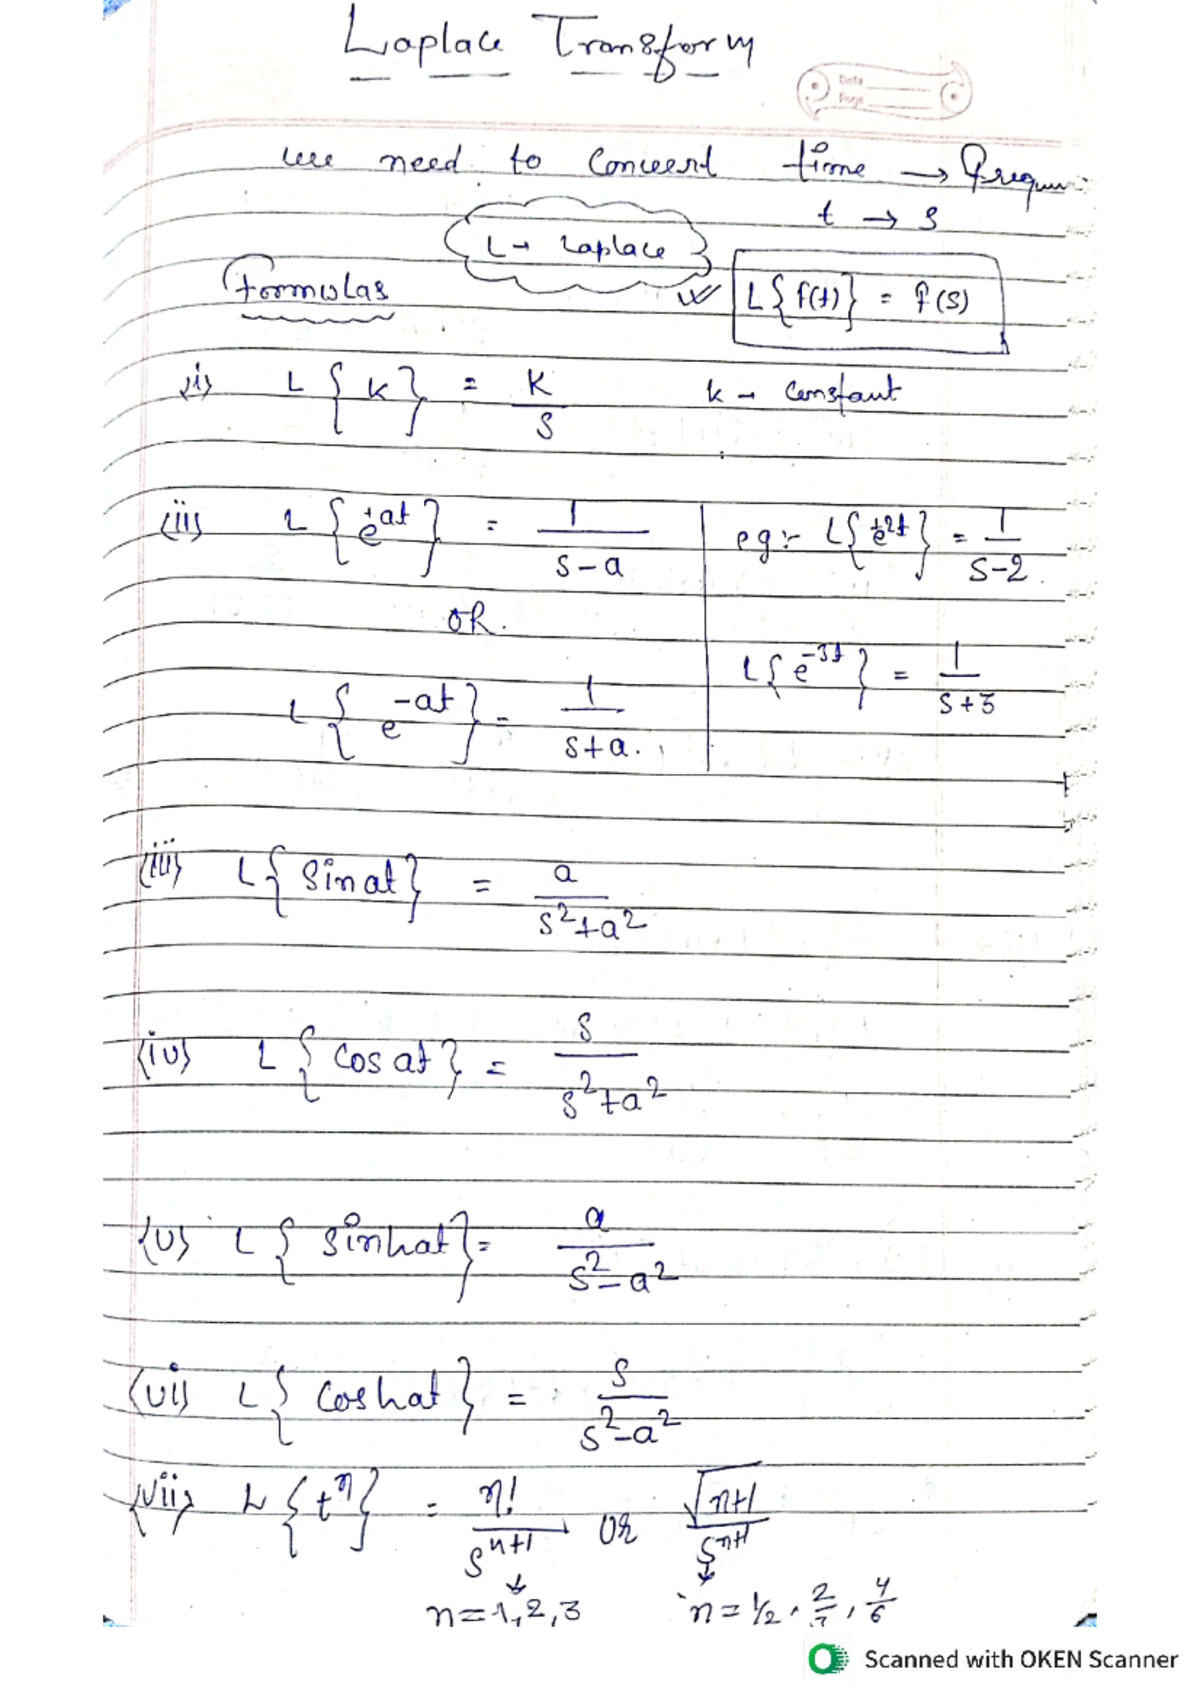 Laplace Transform
Date
Page
we need to Convert time → Frequen
t → s
L → Laplace
Formulas L{f(t)} = f(s)
(i) L{k} = K/S k → Constant
(ii) L{e^{+at}} = 1/(s-a) eg:- L{e^{+2t}} = 1/(s-2)
OR.
L{e^{-3t}} = 1/(s+3)
L{e^{-at}} = 1/(s+a).
(iii) L{Sin at} = a/(s²+a²)
(iv) L{Cos at} = s/(s²+a²)
(v) L{sinhat} = a/(s²-a²)
(vi) L{Coshat} = s/(s²-a²)
(vii) L{t^n} = n!/s^{n+1} OR √(n+1)/s^{n+1}
n=1,2,3 n=1/2, 2/7, 4/6
Scanned with OKEN Scanner